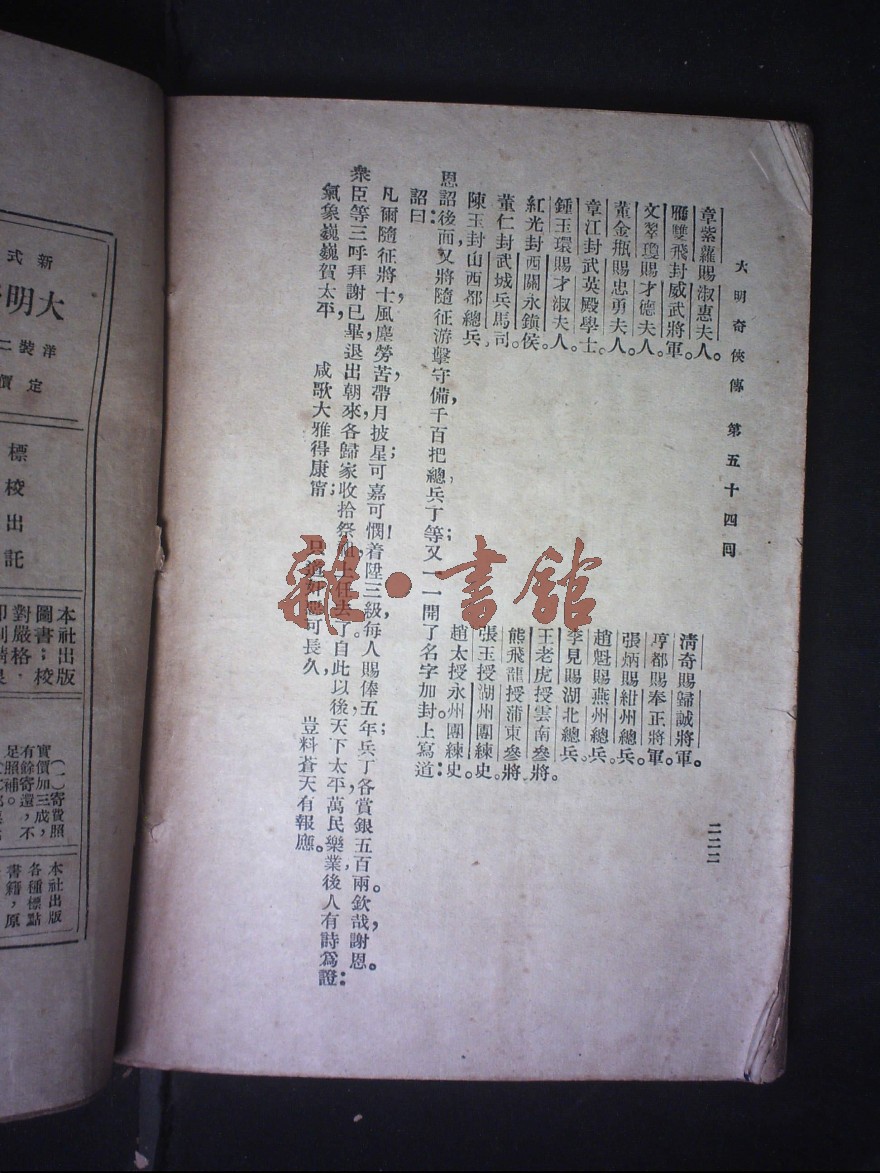 大明奇俠傳　第五十四回
二二二
章紫蘿賜淑惠夫人。
清奇賜歸誠將軍。
雁雙飛封威武將軍。
都賜奉正將軍。
文翠瓊賜才德夫人。
張炳賜紺州總兵。
董金瓶賜忠勇夫人。
趙魁賜燕州總兵。
章江封武英殿學士。
李見賜湖北總兵。
鍾玉環賜才淑夫人。
王老虎授雲南參將。
紅光封西關永鎮侯。
熊飛龍授蒲東參將
董仁封武城兵馬司。
張玉授湖州團練史。
陳玉封山西都總兵
趙太授永州團練史。
恩詔後面，又將隨征游擊守備，千百把總兵丁等；又一一開了名字加封。上寫道：
詔曰：
凡爾隨征將士，風塵勞苦，帶月披星；可嘉可憫！着陞三級，每人賜俸五年；兵丁各賞銀五百兩。欽哉，謝恩。
衆臣等三呼拜謝已畢，退出朝來，各歸家收拾祭祖上任去了。自此以後，天下太平，萬民樂業，後人有詩爲證：
氣象巍巍賀太平，　咸歌大雅得康甯；　只道奸可長久　豈料蒼天有報應。
雜·書館
新式
大明
洋裝二
定價
標
校
出
託
本社出版
圖書；校
對嚴格．
（一）寄費照
實價加三成，
有餘寄還，不
足照補。
本社出版
各種標點
書籍，原